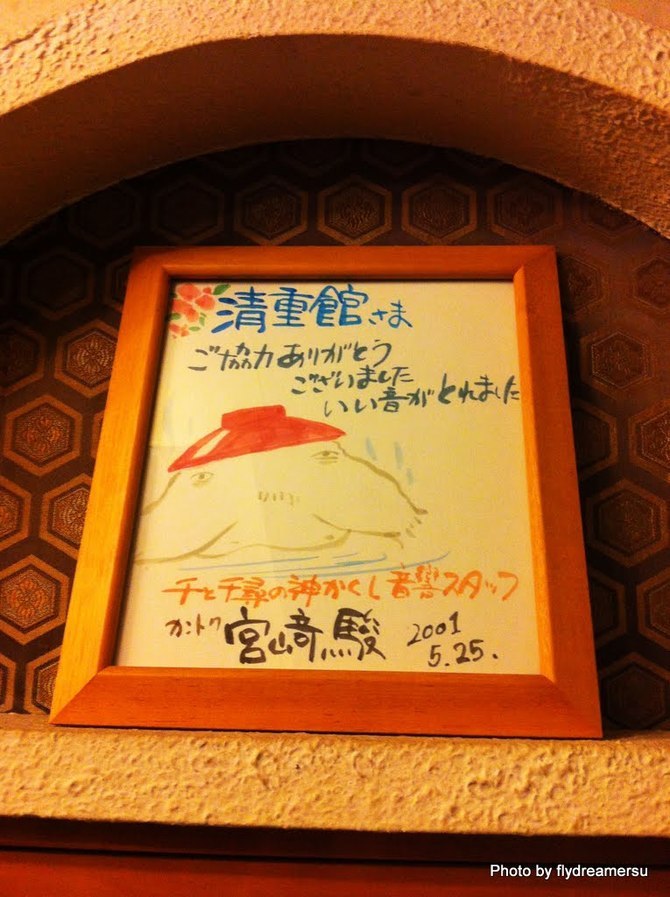 清重館さま
ご協力ありがとう
ございました
いい音がとれました
千と千尋の神かくし音響スタッフ
カントク 宮崎駿 2001
5.25.
Photo by flydreamersu